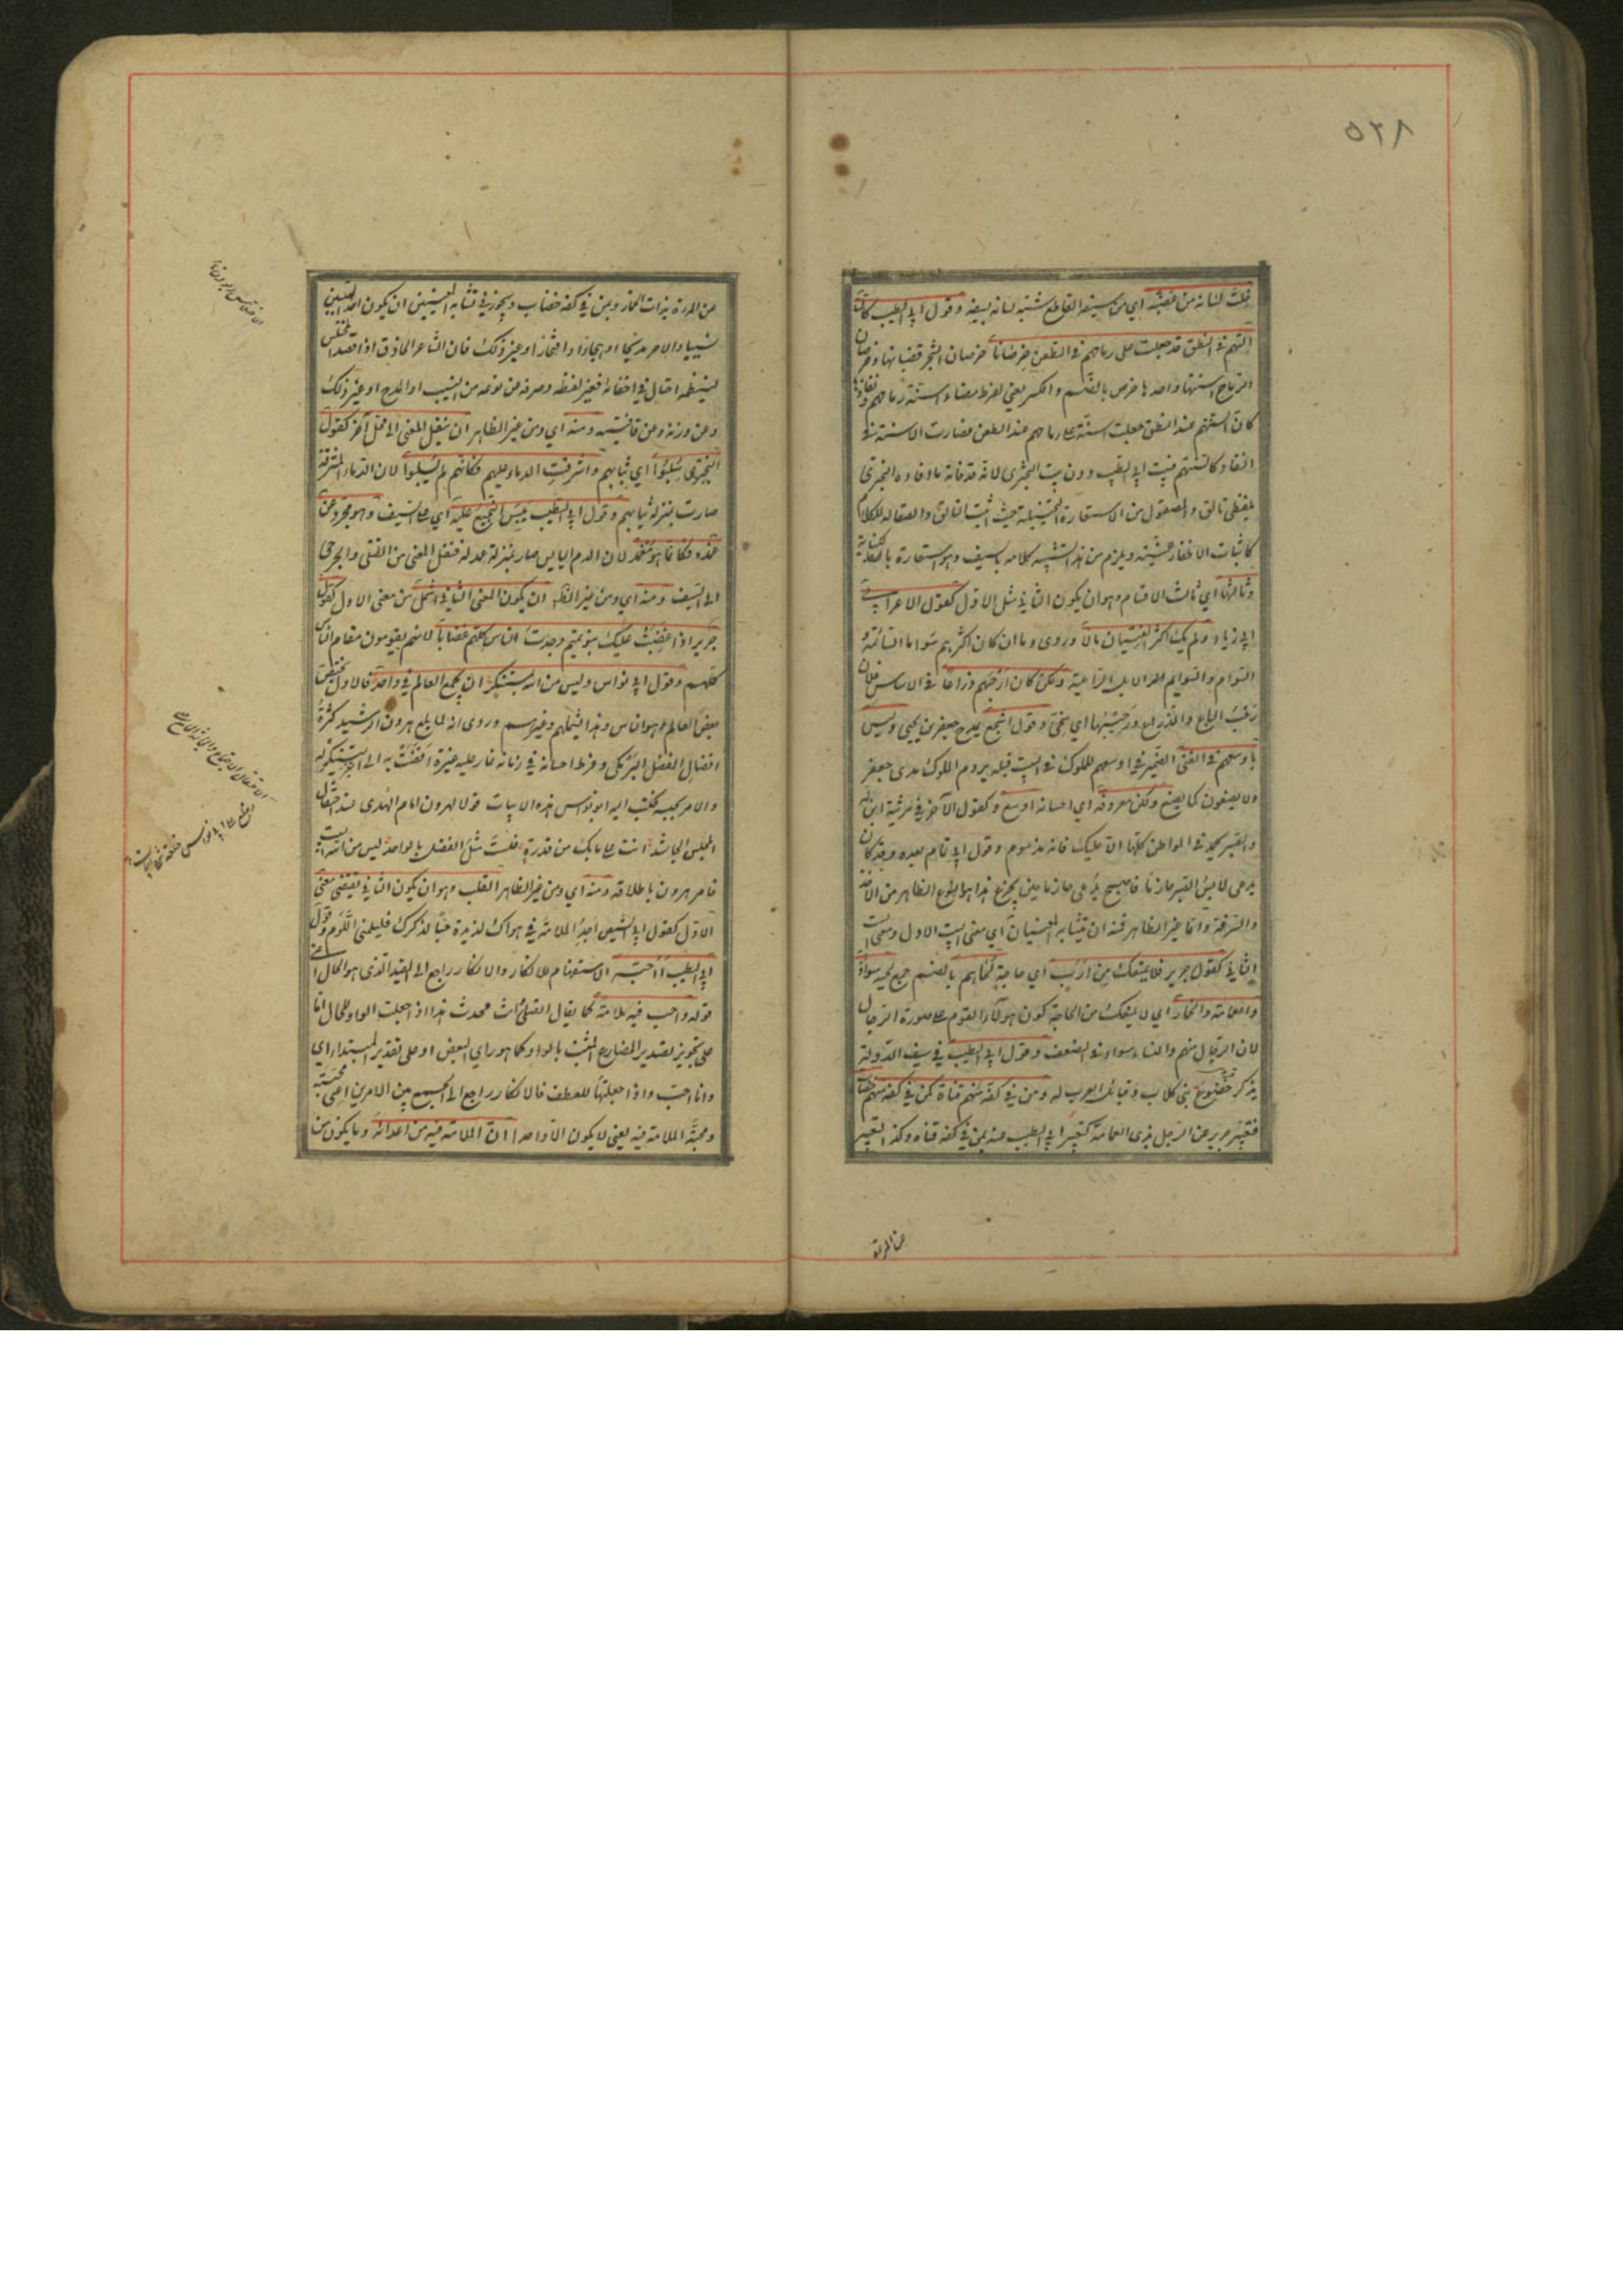 ٥٢٨
خلت لسانه من عضبه اي من سيفه القاطع شبه لسانه بسيفه وقول ابي الطيب كأنّ
السنهم في النطق قد جعلت على رماحهم في الطعن خرصانا خرصان الشجر قضبانها وخرصان
الرماح اسنتها واحدها خرص بالضم والكسر يعني لفرط مضاء اسنة رماحهم ونفاذها
كان السنتهم عند النطق جعلت اسنة على رماحهم عند الطعن فصارت الاسنة في
النفاذ كالسنتهم فبيت ابي الطيب دون بيت البحتري لانه قد فاته ما افاده البحتري
بلفظي تالق والمصقول من الاستعارة التخييلية حيث اثبت التالق والصقالة للكلام
كاثبات الاظفار للمنية ويلزم من هذا تشبيه كلامه بالسيف وهو استعارة بالكناية
وثالثها اي ثالث الاقسام وهو ان يكون الثاني مثل الاول كقول الاعرابي
ابي زياد ولم يك اكثر الفتيان مالا وروى وما ان كان اكثرهم سواما السائمة و
السوام والسوايم الابل الراعية ولكن كان ارحبهم ذراعا في الاساس فلان
رحب الباع والذراع ورحيبهما اي سخي وقول اشجع يمدح جعفر بن يحيى وليس
باوسعهم في الغنى الضمير في اوسعهم للملوك في البيت قبله يروم الملوك مدى جعفر
ولا يصنعون كما يصنع ولكن معروفه اي احسانه اوسع وكقول الآخر في مرثية ابن له
والصبر يحمد في المواطن كلها الا عليك فانه مذموم وقول ابي تمام بعده وقد كان
يدعى لابس الصبر حازما فاصبح يدعى حازما حين يجزع هذا هو النوع الظاهر من الاخذ
والسرقة واما غير الظاهر فمنه ان يتشابه المعنيان اي معنى البيت الاول ومعنى البيت
الثاني كقول جرير فلا يمنعك من ارب اي حاجة لحاهم بالضم جمع لحية سواء
ذو العمامة والخمار اي لا يمنعك من الحاجة كون هؤلاء القوم على صورة الرجال
لان الرجال منهم والنساء سواء في الضعف وقول ابي الطيب في سيف الدولة
يذكر خضوع بني كلاب وقبائل العرب له ومن في كفه منهم قناة كمن في كفه منهم خضاب
فتعبير جرير عن الرجل بذي العمامة كتعبير ابي الطيب عنه بمن في كفه قناة وكذا التعبير
عن المرأة
من المرءة بذات الخمار وبمن في كفه خضاب ويجوز في تشابه المعنيين ان يكون احد البيتين
نسيبا والاخر مديحا او هجاء او افتخارا او غير ذلك فان الشاعر الحاذق اذا قصد الى المختلس
لينظمه احتال في اخفائه فغير لفظه وصرفه عن نوعه من النسيب او المديح او غير ذلك
وعن وزنه وعن قافيته ومنه اي ومن غير الظاهر ان ينقل المعنى الى محل آخر كقول
البحتري سُلبوا اي ثيابهم واشرقت الدماء عليهم فكانهم لم يسلبوا لان الدماء المشرقة
صارت بمنزلة ثيابهم وقول ابي الطيب يبس النجيع عليه اي على السيف وهو مجرد عن
غمده فكانما هو مغمد لان الدم اليابس صار بمنزلة غمد له فنقل المعنى من القتلى والجرحى
الى السيف ومنه اي ومن غير الظاهر ان يكون المعنى الثاني اشمل من معنى الاول كقول
جرير اذا غضبت عليك بنو تميم وجدت الناس كلهم غضابا لانهم يقومون مقام الناس
كلهم وقول ابي نواس وليس من الله بمستنكر ان يجمع العالم في واحد فالاول يختص
بعض العالم وهو الناس وهذا يشملهم وغيرهم وروي انه لما بلغ هرون الرشيد كثرة
افضال الفضل البرمكي وفرط احسانه في زمانه غار عليه غيرة افضت به الى
والامر بحبسه فكتب اليه ابو نواس هذه الابيات قولا لهرون امام الهدى عند احتفال
المجلس الحاشد انت على ما بك من قدرة فلست مثل الفضل بالواحد ليس من الله البيت
فامر هرون باطلاقه ومنه اي ومن غير الظاهر القلب وهو ان يكون الثاني نقيض معنى
الاول كقول ابي الشيص اجد الملامة في هواك لذيذة حبا لذكرك فليلمني اللوم وقول
ابي الطيب أاحبه الاستفهام للانكار والانكار راجع الى القيد الذي هو الحال اعني
قوله واحب فيه ملامة كما يقال اتصلي وانت محدث هذا اذا جعلت الواو للحال اما
على تجويز تصدير المضارع المثبت بالواو كما هو راي البعض او على تقدير المبتدا اي
وانا احب واذا جعلتها للعطف فالانكار راجع الى الجمع بين الامرين اعني محبته
ومحبة الملامة فيه يعني لا يكون الا واحدا ان الملامة فيه من اعدائه وما يكون من